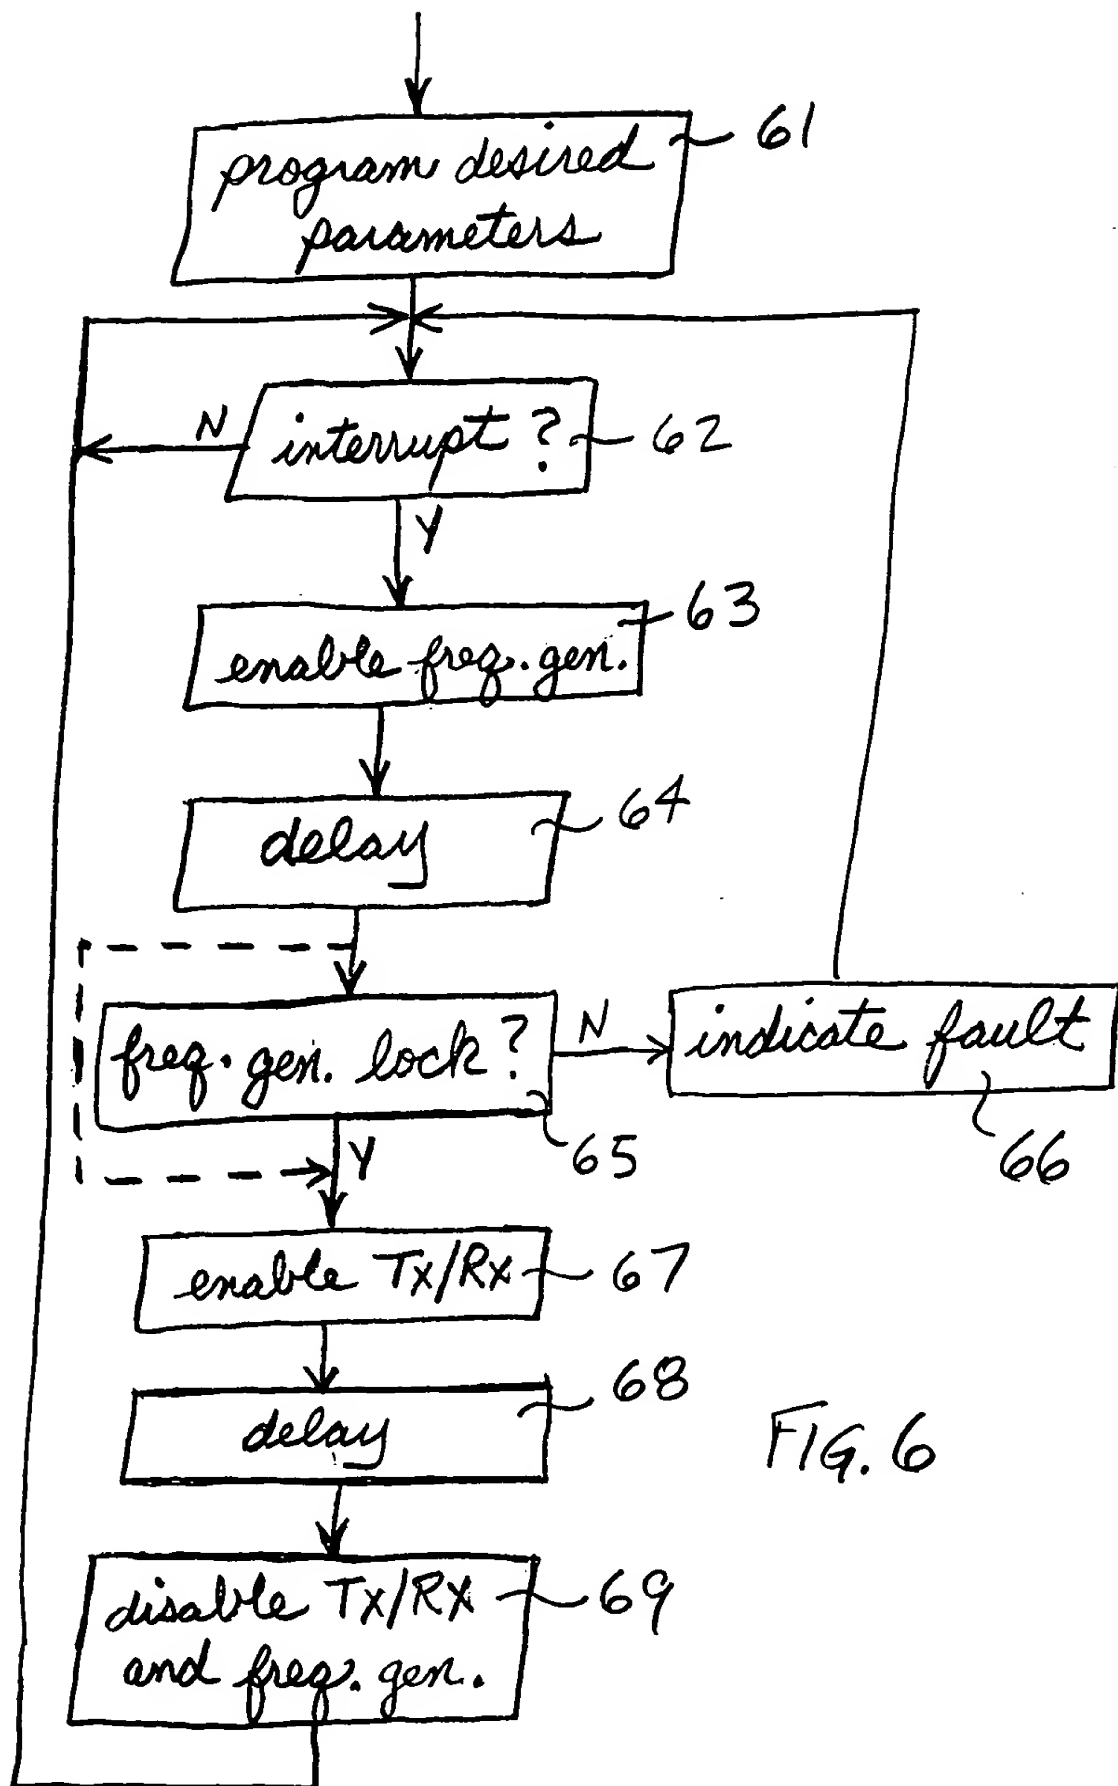 61
program desired
parameters
N
interrupt ?
62
Y
63
enable freq. gen.
64
delay
freq. gen. lock ?
N
indicate fault
65
66
Y
enable Tx/Rx
67
68
delay
FIG. 6
disable Tx/Rx
69
and freq. gen.